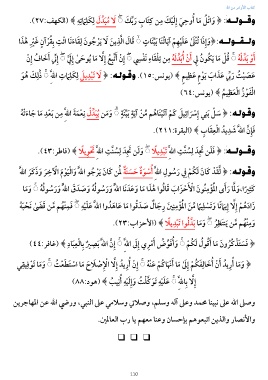 وقوله: ﴿ وَاتْلُ مَا أُوحِيَ إِلَيْكَ مِن كِتَابِ رَبِّكَ ۖ لَا مُبَدِّلَ لِكَلِمَاتِهِ ﴾ (الكهف:٢٧).
ولقوله: ﴿وَإِذَا تُتْلَىٰ عَلَيْهِمْ آيَاتُنَا بَيِّنَاتٍ ۙ قَالَ الَّذِينَ لَا يَرْجُونَ لِقَاءَنَا ائْتِ بِقُرْآنٍ غَيْرِ هَٰذَا
أَوْ بَدِّلْهُ ۚ قُلْ مَا يَكُونُ لِي أَنْ أُبَدِّلَهُ مِن تِلْقَاءِ نَفْسِي ۖ إِنْ أَتَّبِعُ إِلَّا مَا يُوحَىٰ إِلَيَّ ۖ إِنِّي أَخَافُ إِنْ
عَصَيْتُ رَبِّي عَذَابَ يَوْمٍ عَظِيمٍ ﴾ (يونس:١٥). وقوله: ﴿ لَا تَبْدِيلَ لِكَلِمَاتِ اللَّهِ ۚ ذَٰلِكَ هُوَ
الْفَوْزُ الْعَظِيمُ ﴾ (يونس:٦٤).
وقوله: ﴿ سَلْ بَنِي إِسْرَائِيلَ كَمْ آتَيْنَاهُم مِّنْ آيَةٍ بَيِّنَةٍ ۗ وَمَن يُبَدِّلْ نِعْمَةَ اللَّهِ مِن بَعْدِ مَا جَاءَتْهُ
فَإِنَّ اللَّهَ شَدِيدُ الْعِقَابِ ﴾ (البقرة:٢١١).
وقوله: ﴿ فَلَن تَجِدَ لِسُنَّتِ اللَّهِ تَبْدِيلًا ۖ وَلَن تَجِدَ لِسُنَّتِ اللَّهِ تَحْوِيلًا ﴾ (فاطر:٤٣).
وقوله: ﴿ لَّقَدْ كَانَ لَكُمْ فِي رَسُولِ اللَّهِ أُسْوَةٌ حَسَنَةٌ لِّمَن كَانَ يَرْجُو اللَّهَ وَالْيَوْمَ الْآخِرَ وَذَكَرَ اللَّهَ
كَثِيرًا، وَلَمَّا رَأَى الْمُؤْمِنُونَ الْأَحْزَابَ قَالُوا هَٰذَا مَا وَعَدَنَا اللَّهُ وَرَسُولُهُ وَصَدَقَ اللَّهُ وَرَسُولُهُ ۚ وَمَا
زَادَهُمْ إِلَّا إِيمَانًا وَتَسْلِيمًا مِّنَ الْمُؤْمِنِينَ رِجَالٌ صَدَقُوا مَا عَاهَدُوا اللَّهَ عَلَيْهِ ۖ فَمِنْهُم مَّن قَضَىٰ نَحْبَهُ
وَمِنْهُم مَّن يَنتَظِرُ ۖ وَمَا بَدَّلُوا تَبْدِيلًا ﴾ (الأحزاب:٢٣).
﴿ فَسَتَذْكُرُونَ مَا أَقُولُ لَكُمْ ۚ وَأُفَوِّضُ أَمْرِي إِلَى اللَّهِ ۚ إِنَّ اللَّهَ بَصِيرٌ بِالْعِبَادِ ﴾ (غافر:٤٤)
﴿ وَمَا أُرِيدُ أَنْ أُخَالِفَكُمْ إِلَىٰ مَا أَنْهَاكُمْ عَنْهُ ۚ إِنْ أُرِيدُ إِلَّا الْإِصْلَاحَ مَا اسْتَطَعْتُ ۚ وَمَا تَوْفِيقِي
إِلَّا بِاللَّهِ ۚ عَلَيْهِ تَوَكَّلْتُ وَإِلَيْهِ أُنِيبُ ﴾ (هود:٨٨)
وصلى الله على نبينا محمد وعلى آله وسلم، وصلاتي وسلامي على النبي، ورضي الله عن المهاجرين
والأنصار والذين اتبعوهم بإحسان وعنا معهم يا رب العالمين.
110